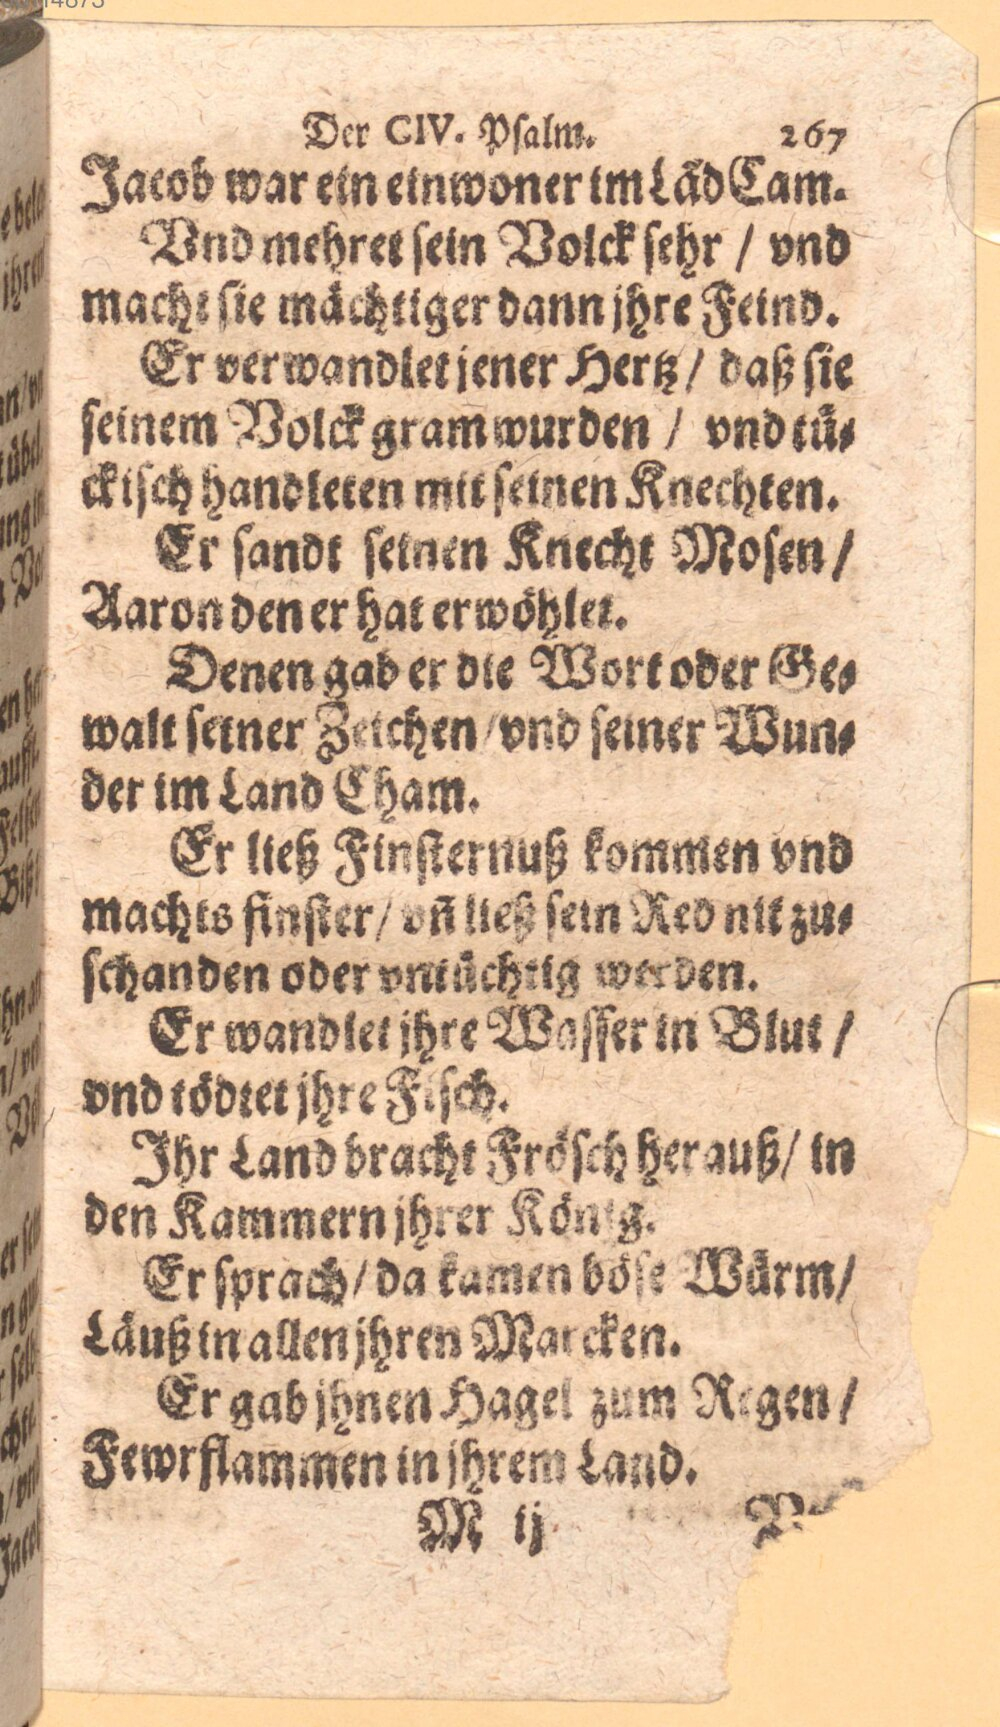 Der CIV. Psalm. 267
Jacob war ein einwoner im Lãd Cam.
Vnd mehret sein Volck sehr / vnd
macht sie mächtiger dann jhre Feind.
Er verwandlet jener Hertz / daß sie
seinem Volck gram wurden / vnd tü-
ckisch handleten mit seinen Knechten.
Er sandt seinen Knecht Mosen /
Aaron den er hat erwöhlet.
Denen gab er die Wort oder Ge-
walt seiner Zeichen / vnd seiner Wun-
der im Land Cham.
Er ließ Finsternuß kommen vnd
machts finster / vñ ließ sein Red nit zu-
schanden oder vntüchtig werden.
Er wandlet jhre Wasser in Blut /
vnd tödtet jhre Fisch.
Ihr Land bracht Frösch herauß / in
den Kammern jhrer König.
Er sprach / da kamen böse Würm /
Läuß in allen jhren Marcken.
Er gab jhnen Hagel zum Regen /
Fewrflammen in jhrem Land.
M ij